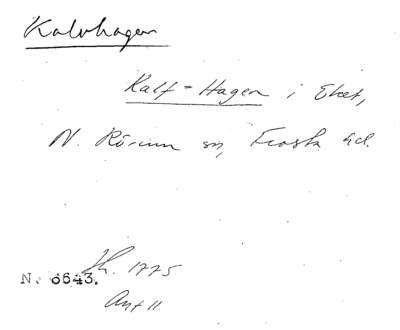 Kalvhagen
Kalf-Hagen i Eket,
N. Rörum sn, Frosta hd.
N. 6643. Lh. 1775
Akt 11